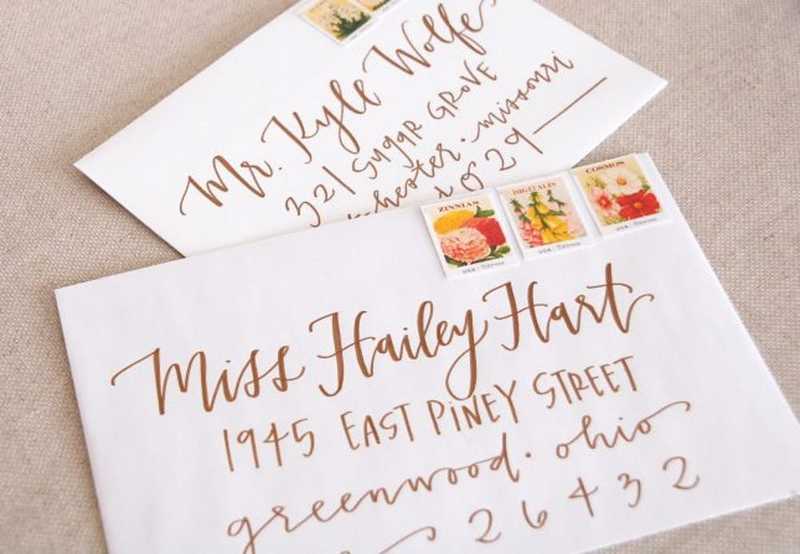 Mr. Kyle Wolfe
321 SUGAR GROVE
missouri
029
ZINNIAS
DIGITALIS
COSMOS
Miss Hailey Hart
1945 EAST PINEY STREET
greenwood. ohio
26432